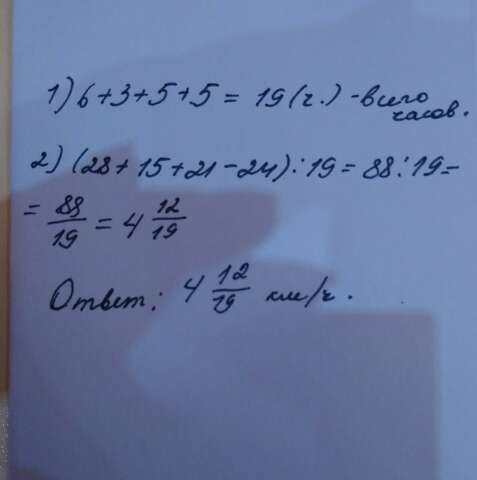 1) 6+3+5+5 = 19 (ч.) - всего
часов.
2) (28 + 15 + 21 - 24) : 19 = 88 : 19 =
= 88/19 = 4 12/19
Ответ: 4 12/19 км/ч.